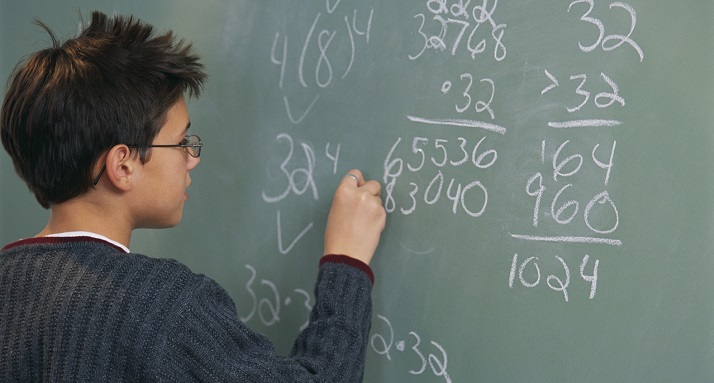 4(8)4
32⁴
32·3
2·32
222
32768
·32
65536
83040
32
>32
164
960
1024